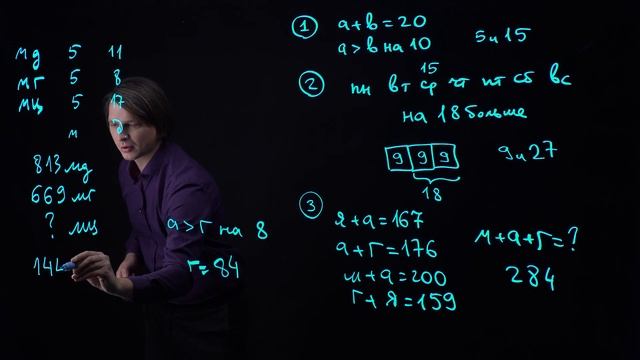 мд 5 11
мг 5 8
мц 5 17
м
813 мд
669 мг
? мц
144
а>г на 8
г=84
1 а+в=20
а>в на 10
5 и 15
2 15
пн вт ср чт пт сб вс
на 18 больше
9 9 9
18
9 и 27
3 я+а=167
а+г=176
м+а=200
г+я=159
м+а+г=?
284